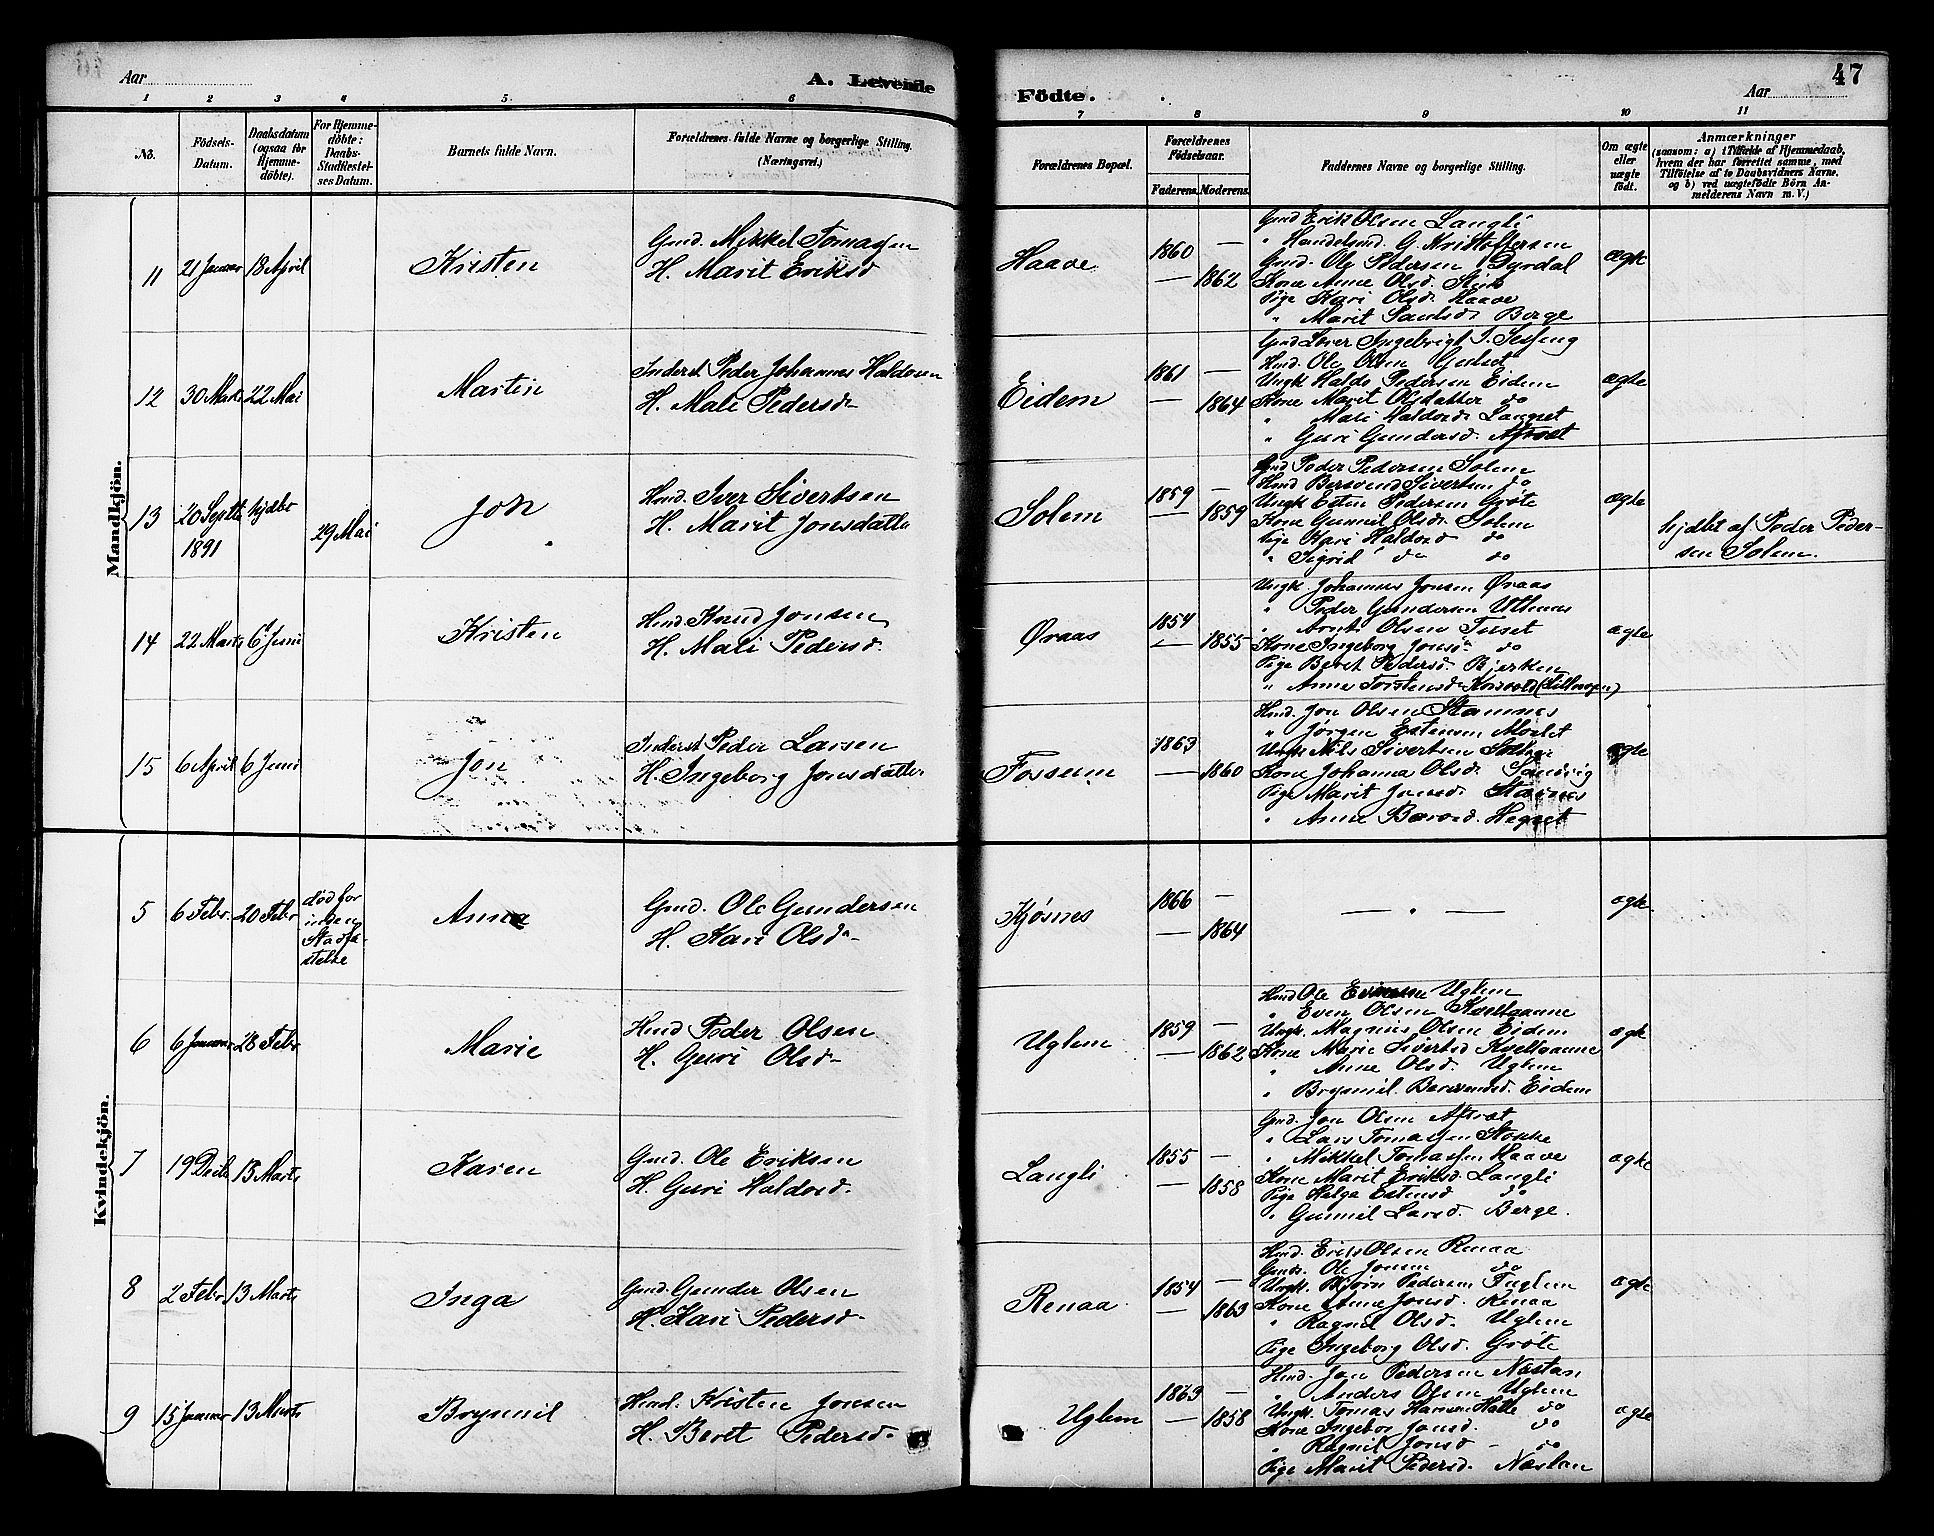 Aar
A. Levende
Födte.
Aar
47
1 2 3 4 5 6 7 8 9 10 11
No.
Födsels-
Datum.
Daabsdatum
(ogsaa for
Hjemme-
döbte).
For Hjemme-
döbte:
Daabs-
Stadfæstel-
ses Datum.
Barnets fulde Navn.
Forældrenes fulde Navne og borgerlige Stilling.
(Næringsvei.)
Forældrenes Bopæl.
Forældrenes
Födselsaar.
Faderens. Moderens.
Faddernes Navne og borgerlige Stilling.
Om ægte
eller
uægte
födt.
Anmærkninger
(saasom: a) i Tilfælde af Hjemmedaab,
hvem der har forrettet samme, med
Tilföielse af to Daabsvidners Navne,
og b) ved uægtefödte Börn An-
melderens Navn m. V.)
Mandkjön.
11 21 Januar 18 April Kristen
Gmd. Mikkel Tomassen
H. Marit Eriksd
Haave 1860 —
— 1862
Gmd Erik Olsen Langli
" Handelsmd. G. Kristoffersen
Gmd. Ole Pedersen Dyrdal
Kone Anne Olsd.
Pige Kari Olsd. Haave
" Marit Paulsd. Berge
ægte
12 30 Marts 22 Mai Martin
Inderst Peder Johannes Haldosen
H. Mali Pedersd.
Eidem 1861 —
— 1864
Ingebrigt J. Sesseng
Hmd. Ole Olsen Gulset
Ungk Haldo Pedersen Eidem
Kone Marit Olsdatter do
" Mali Haldosd. Langset
" Guri Gundersd. Aftret
ægte
13 20 Septbr
1891
hjdbt 29 Mai Jon
Hmd. Iver Sivertsen
H. Marit Jonsdatter
Solem 1859 —
— 1859
Gmd Peder Pedersen Solem
Hmd Bersvend Sivertsen do
Ungk Esten Pedersen Grøte
Kone Gunnil Olsd. Solem
Pige Kari Haldosd do
" Sigrid do do
ægte
hjdbt af Peder Peder-
sen Solem.
14 22 Marts 6 Juni Kristen
Hmd. Knud Jonsen
H. Mali Pedersd.
Øraas 1854
— 1855
Ungk Johannes Jonsen Øraas
" Peder Gundersen Uthuus
" Arnt Olsen Tuset
Kone Ingeborg Jonsd. do
Pige Beret Pedersd. Bjerken
" Anne Torstensd.
ægte
15 6 April 6 Juni Jon
Inderst Peder Larsen
H. Ingeborg Jonsdatter
Fossum 1863 —
— 1860
Hmd. Jon Olsen Stamnes
" Jørgen Estensen Moslet
Ungk Nils Sivertsen
Kone Johanna Olsd. Sandvig
Pige Marit Jonsd. Stamnes
" Anne Barosd. Hegset
ægte
Kvindekjön.
5 6 Febr. 20 Febr
død før
ingen
Stadfæ-
stelse
Anna
Gmd. Ole Gundersen
H. Kari Olsd.
Kjøsnes 1866 —
— 1864
— " —
ægte
6 6 Januar 28 Febr Marie
Hmd Peder Olsen
H. Guri Olsd.
Uglem 1859 —
— 1862
Hmd Ole Evensen Uglem
" Even Olsen Kvelloanne
Ungk. Magnus Olsen Eidem
Kone Marie Sivertsd Kvelloanne
" Anne Olsd. Uglem
" Brynnil. Bersvendsd. Eidem
ægte
7 19 Decbr 13 Marts Karen
Gmd. Ole Eriksen
H. Guri Haldosd.
Langli 1855 —
— 1858
Gmd. Jon Olsen Aftret
" Lars Tomassen Stokke
" Mikkel Tomassen Haave
Kone Marit Eriksd. Langli
Pige Helga Estensd do
" Gunnil Larsd. Berge.
ægte
8 2 Febr 13 Marts Inga
Gmd Gunder Olsen
H. Kari Pedersd.
Renaa 1854 —
— 1863
Hmd. Erik Olsen Renaa
Gmd. Ole Jonsen do
Ungk. Bjørn Pedersen Fuglem
Kone Anne Jonsd. Renaa
" Ragnil Olsd. Uglem
Pige Ingeborg Olsd. Grøte
ægte
9 15 Januar 13 Marts Brynnil
Hmd. Kristen Jonsen
H. Beret Pedersd.
Uglem 1863 —
— 1858
Hmd. Jon Pedersen Næstan
" Anders Olsen Uglem
Ungk. Tomas Hansen Halle do
Kone Ingebor Jonsd. do
" Ragnil Jonsd — do
Pige Marit Pedersd. Næstan
ægte